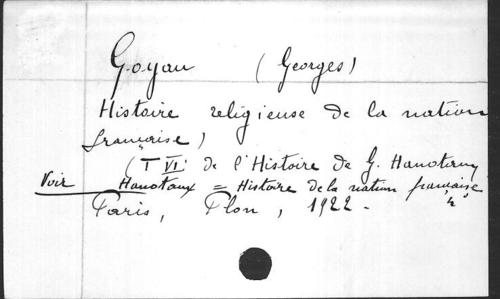 Goyau (Georges)
Histoire religieuse de la nation
française)
(T VI. de l'Histoire de G. Hanotaux
Voir Hanotaux = Histoire de la nation française
Paris, Plon, 1922. 4°